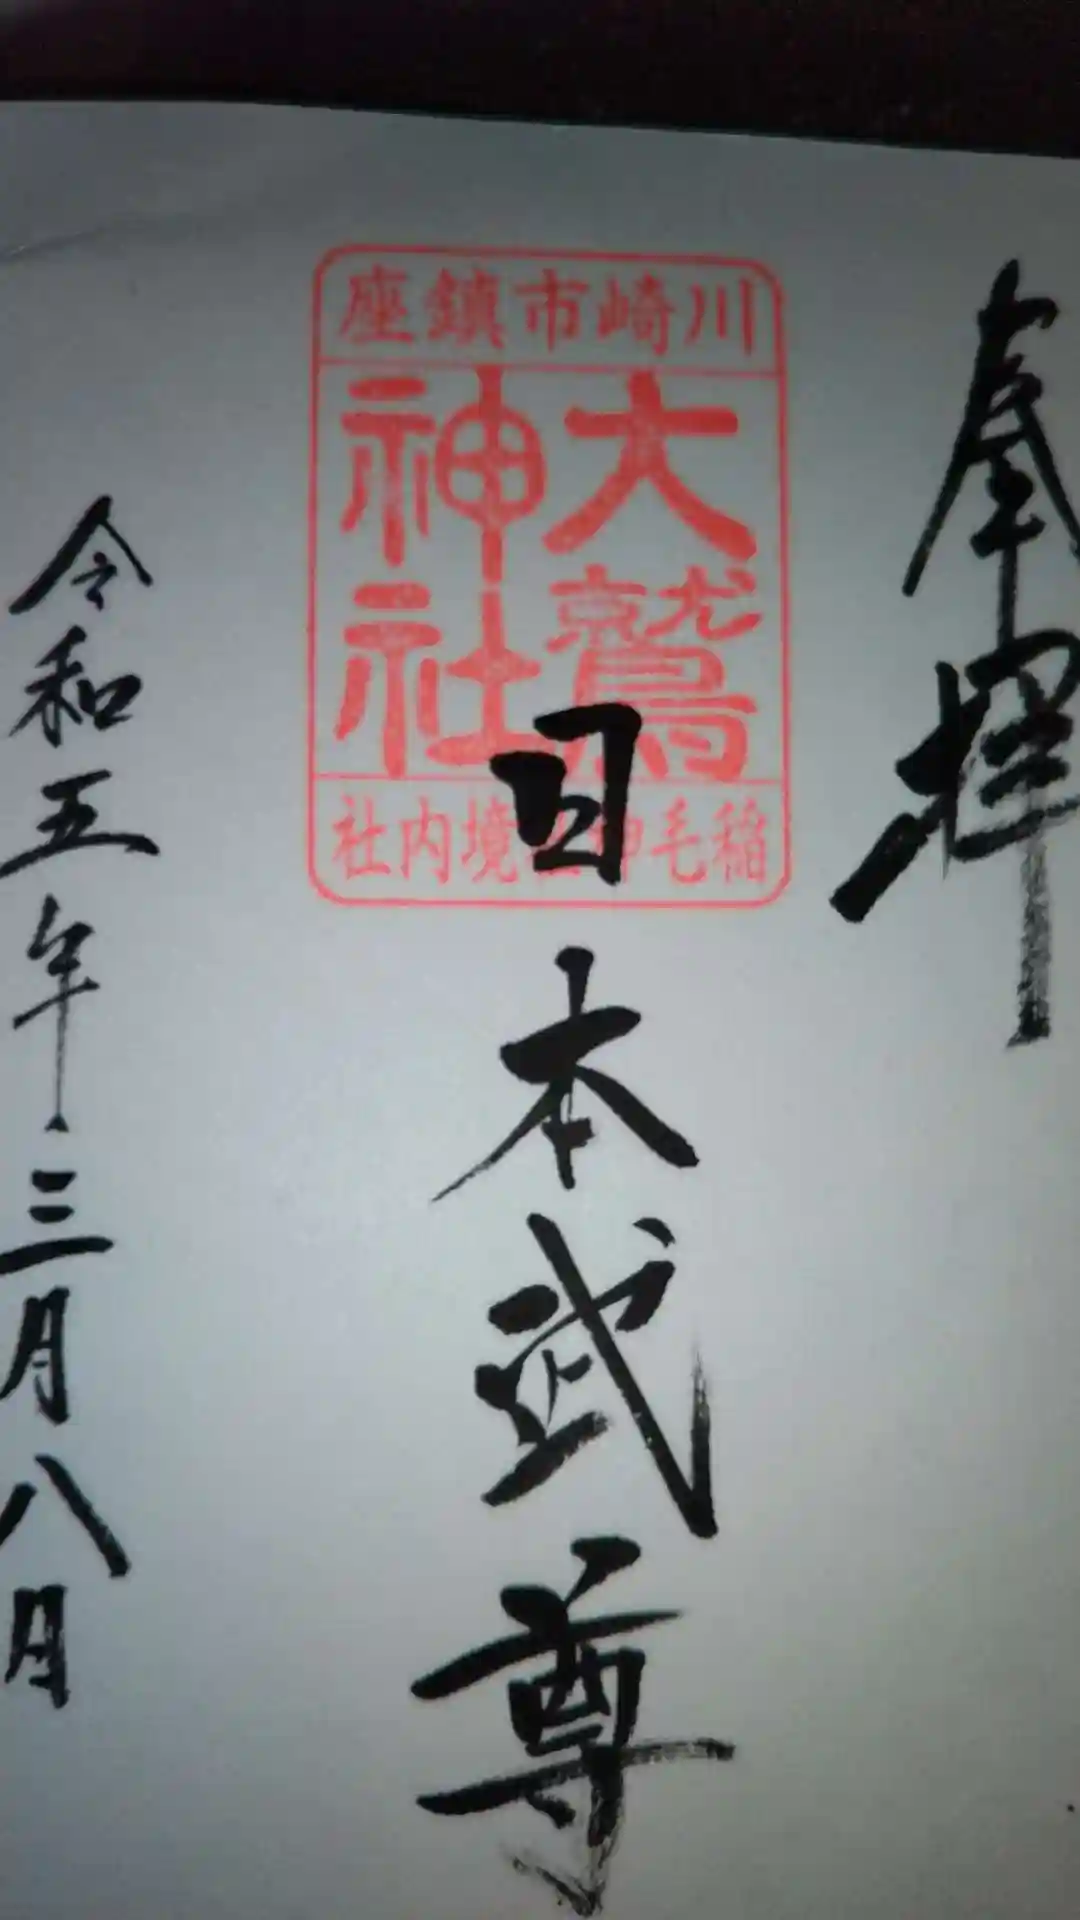 奉拝
川崎市鎮座
大鷲
神社
稲毛神社境内社
日本武尊
令和五年三月八日